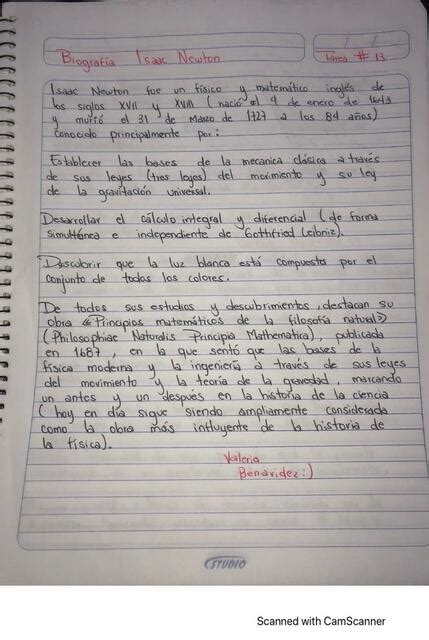 Biografía Isaac Newton
/ /
tarea # 13
Isaac Newton fue un físico y matemático inglés de
los siglos XVII y XVIII (nació el 4 de enero de 1643
y murió el 31 de Marzo de 1727 a los 84 años)
conocido principalmente por:
Establecer las bases de la mecanica clásica a través
de sus leyes (tres leyes) del movimiento y su ley
de la gravitación universal.
Desarrollar el cálculo integral y diferencial (de forma
simultánea e independiente de Gottfried Leibniz).
Descubrir que la luz blanca está compuesta por el
conjunto de todos los colores.
De todos sus estudios y descubrimientos, destacan su
obra «Principios matemáticos de la filosofía natural»
(Philosophiae Naturalis Principia Mathematica), publicada
en 1687, en la que sentó que las bases de la
física moderna y la ingeniería a través de sus leyes
del movimiento y la teoría de la gravedad, marcando
un antes y un después en la historia de la ciencia
(hoy en día sigue siendo ampliamente considerada
como la obra más influyente de la historia de
la física).
Valeria
Benavidez:)
STUDIO
Scanned with CamScanner